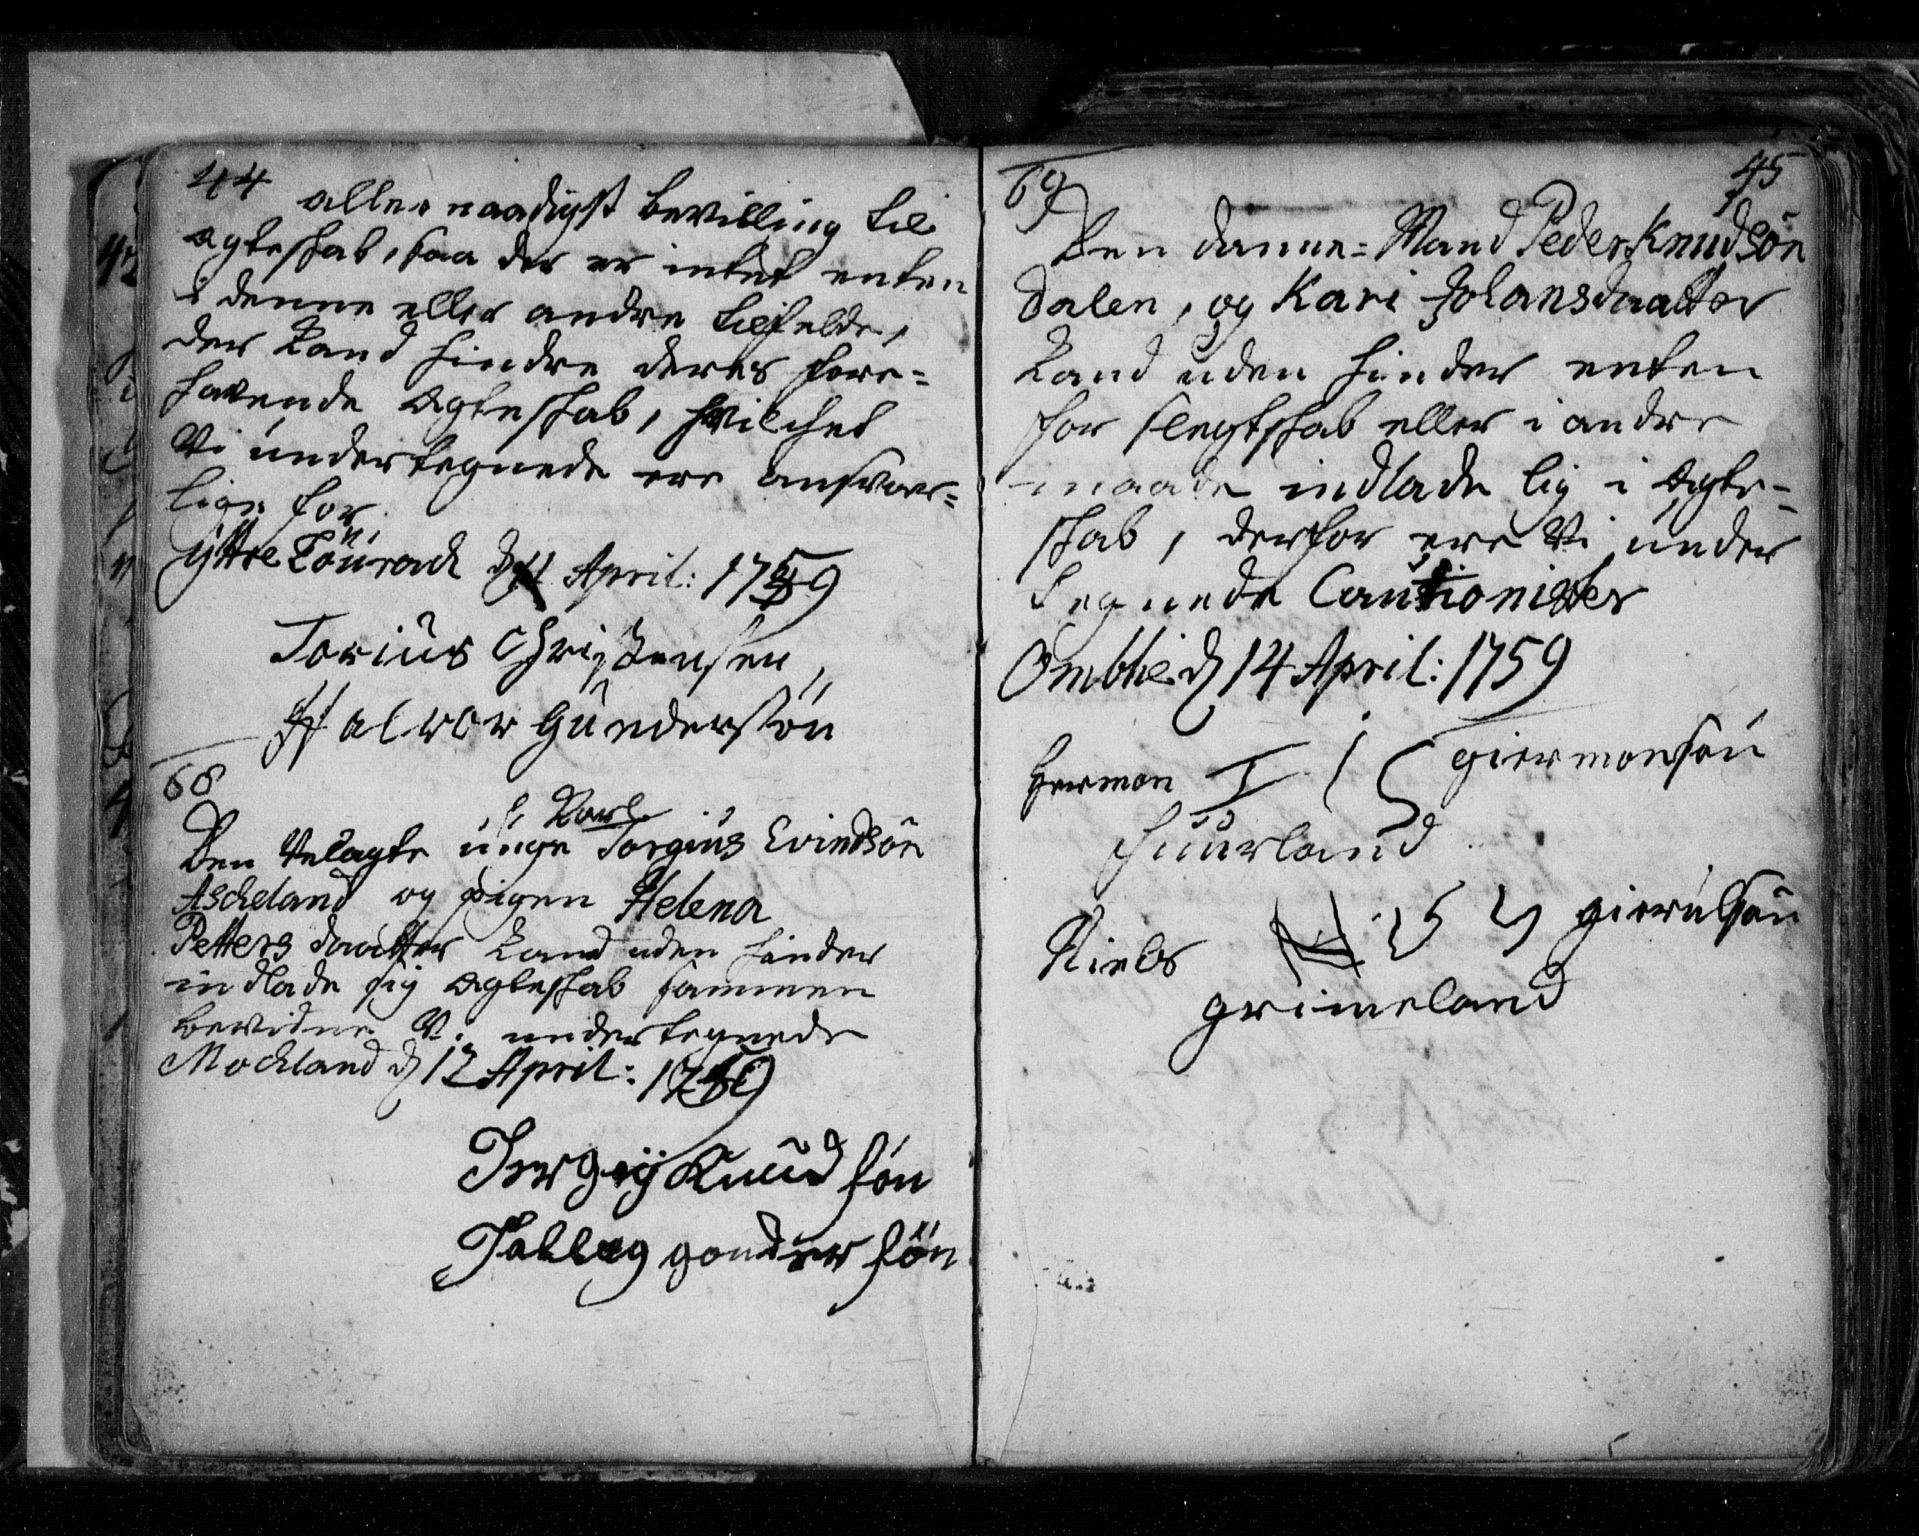 44
allernaadigst bevilling til
ægteskab, saa der er intet enten
i denne eller andre tilfelde,
der kand hindre deres fore=
havende Ægteskab, hvilchet
Vi undertegnede ere ansvar=
lige for
Yttre d 11 April: 1759
Torius Christensen
Halvor Gundersøn
68
Karl
Den Velagte unge Torgius Evindsøn
Ascheland og pigen Helena
Petters daatter kand uden hinder
indlade sig Ægteskab sammen
bevidner Vi undertegnede
Mochland d 12 April: 1759
Knudsøn
Talleg gondersøn
45
69
Den Danne=Mand Peder Knudsøn
Dalen, og Kari Johansdaatter
kand uden hinder enten
for slegtskab eller i andre
maade indlade sig i Ægte=
skab, derfor ere Vi under
tegnede Cautionister
Omblie d 14 April: 1759
Herman I S giermonsøn
fuurland
Niels N S giervelsøn
grimeland